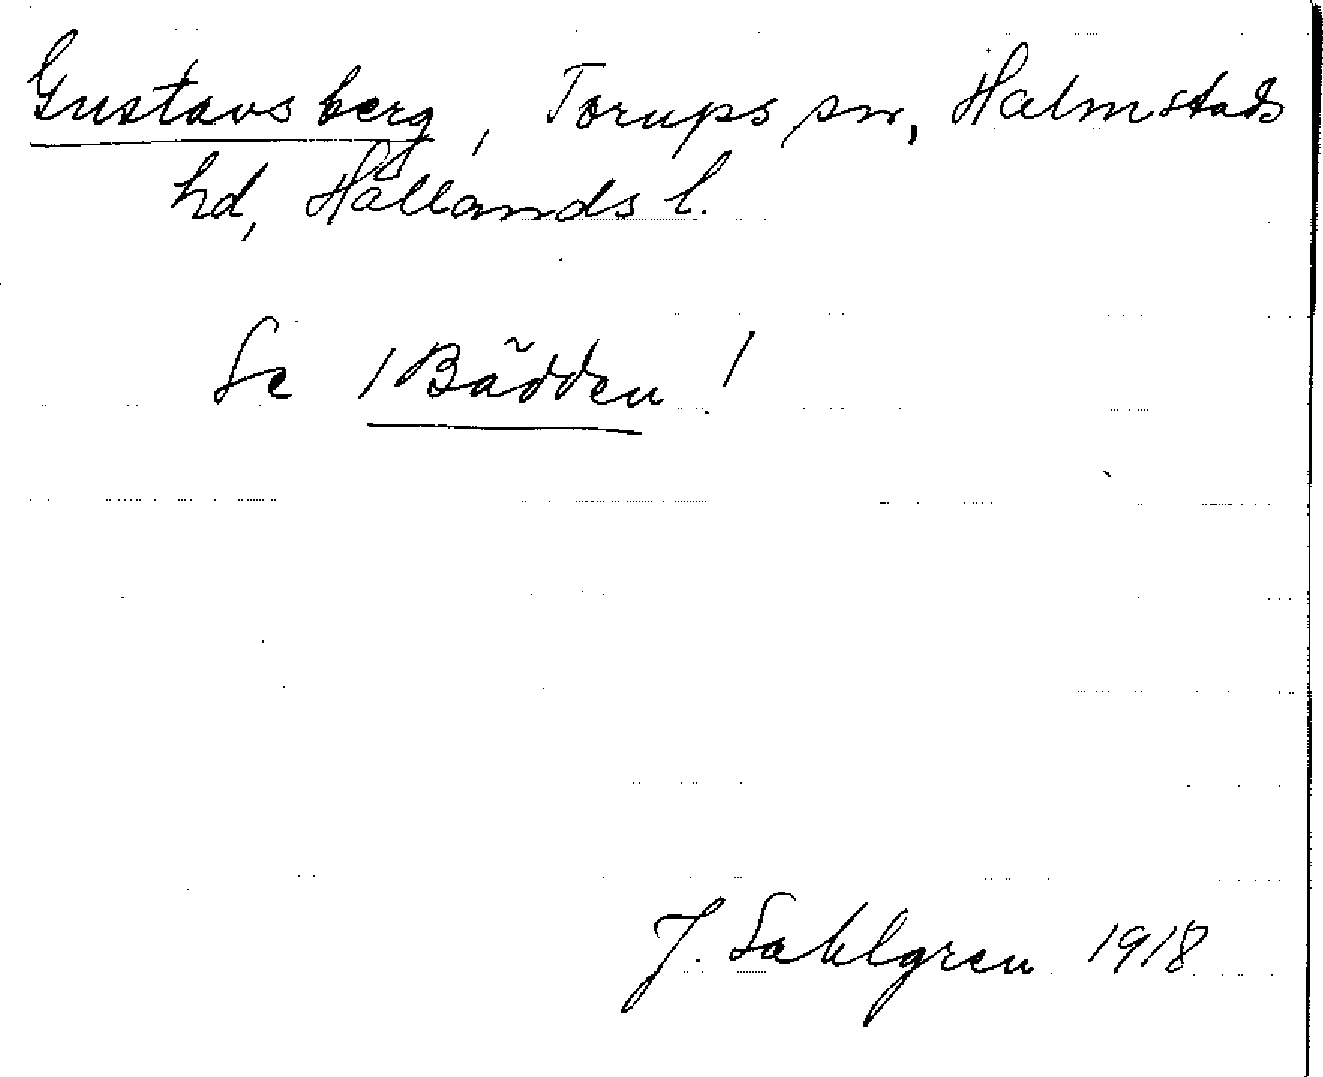 Gustavsberg, Torups sn, Halmstads
hd, Hallands l.
Se /Bädden !
J. Sahlgren 1918